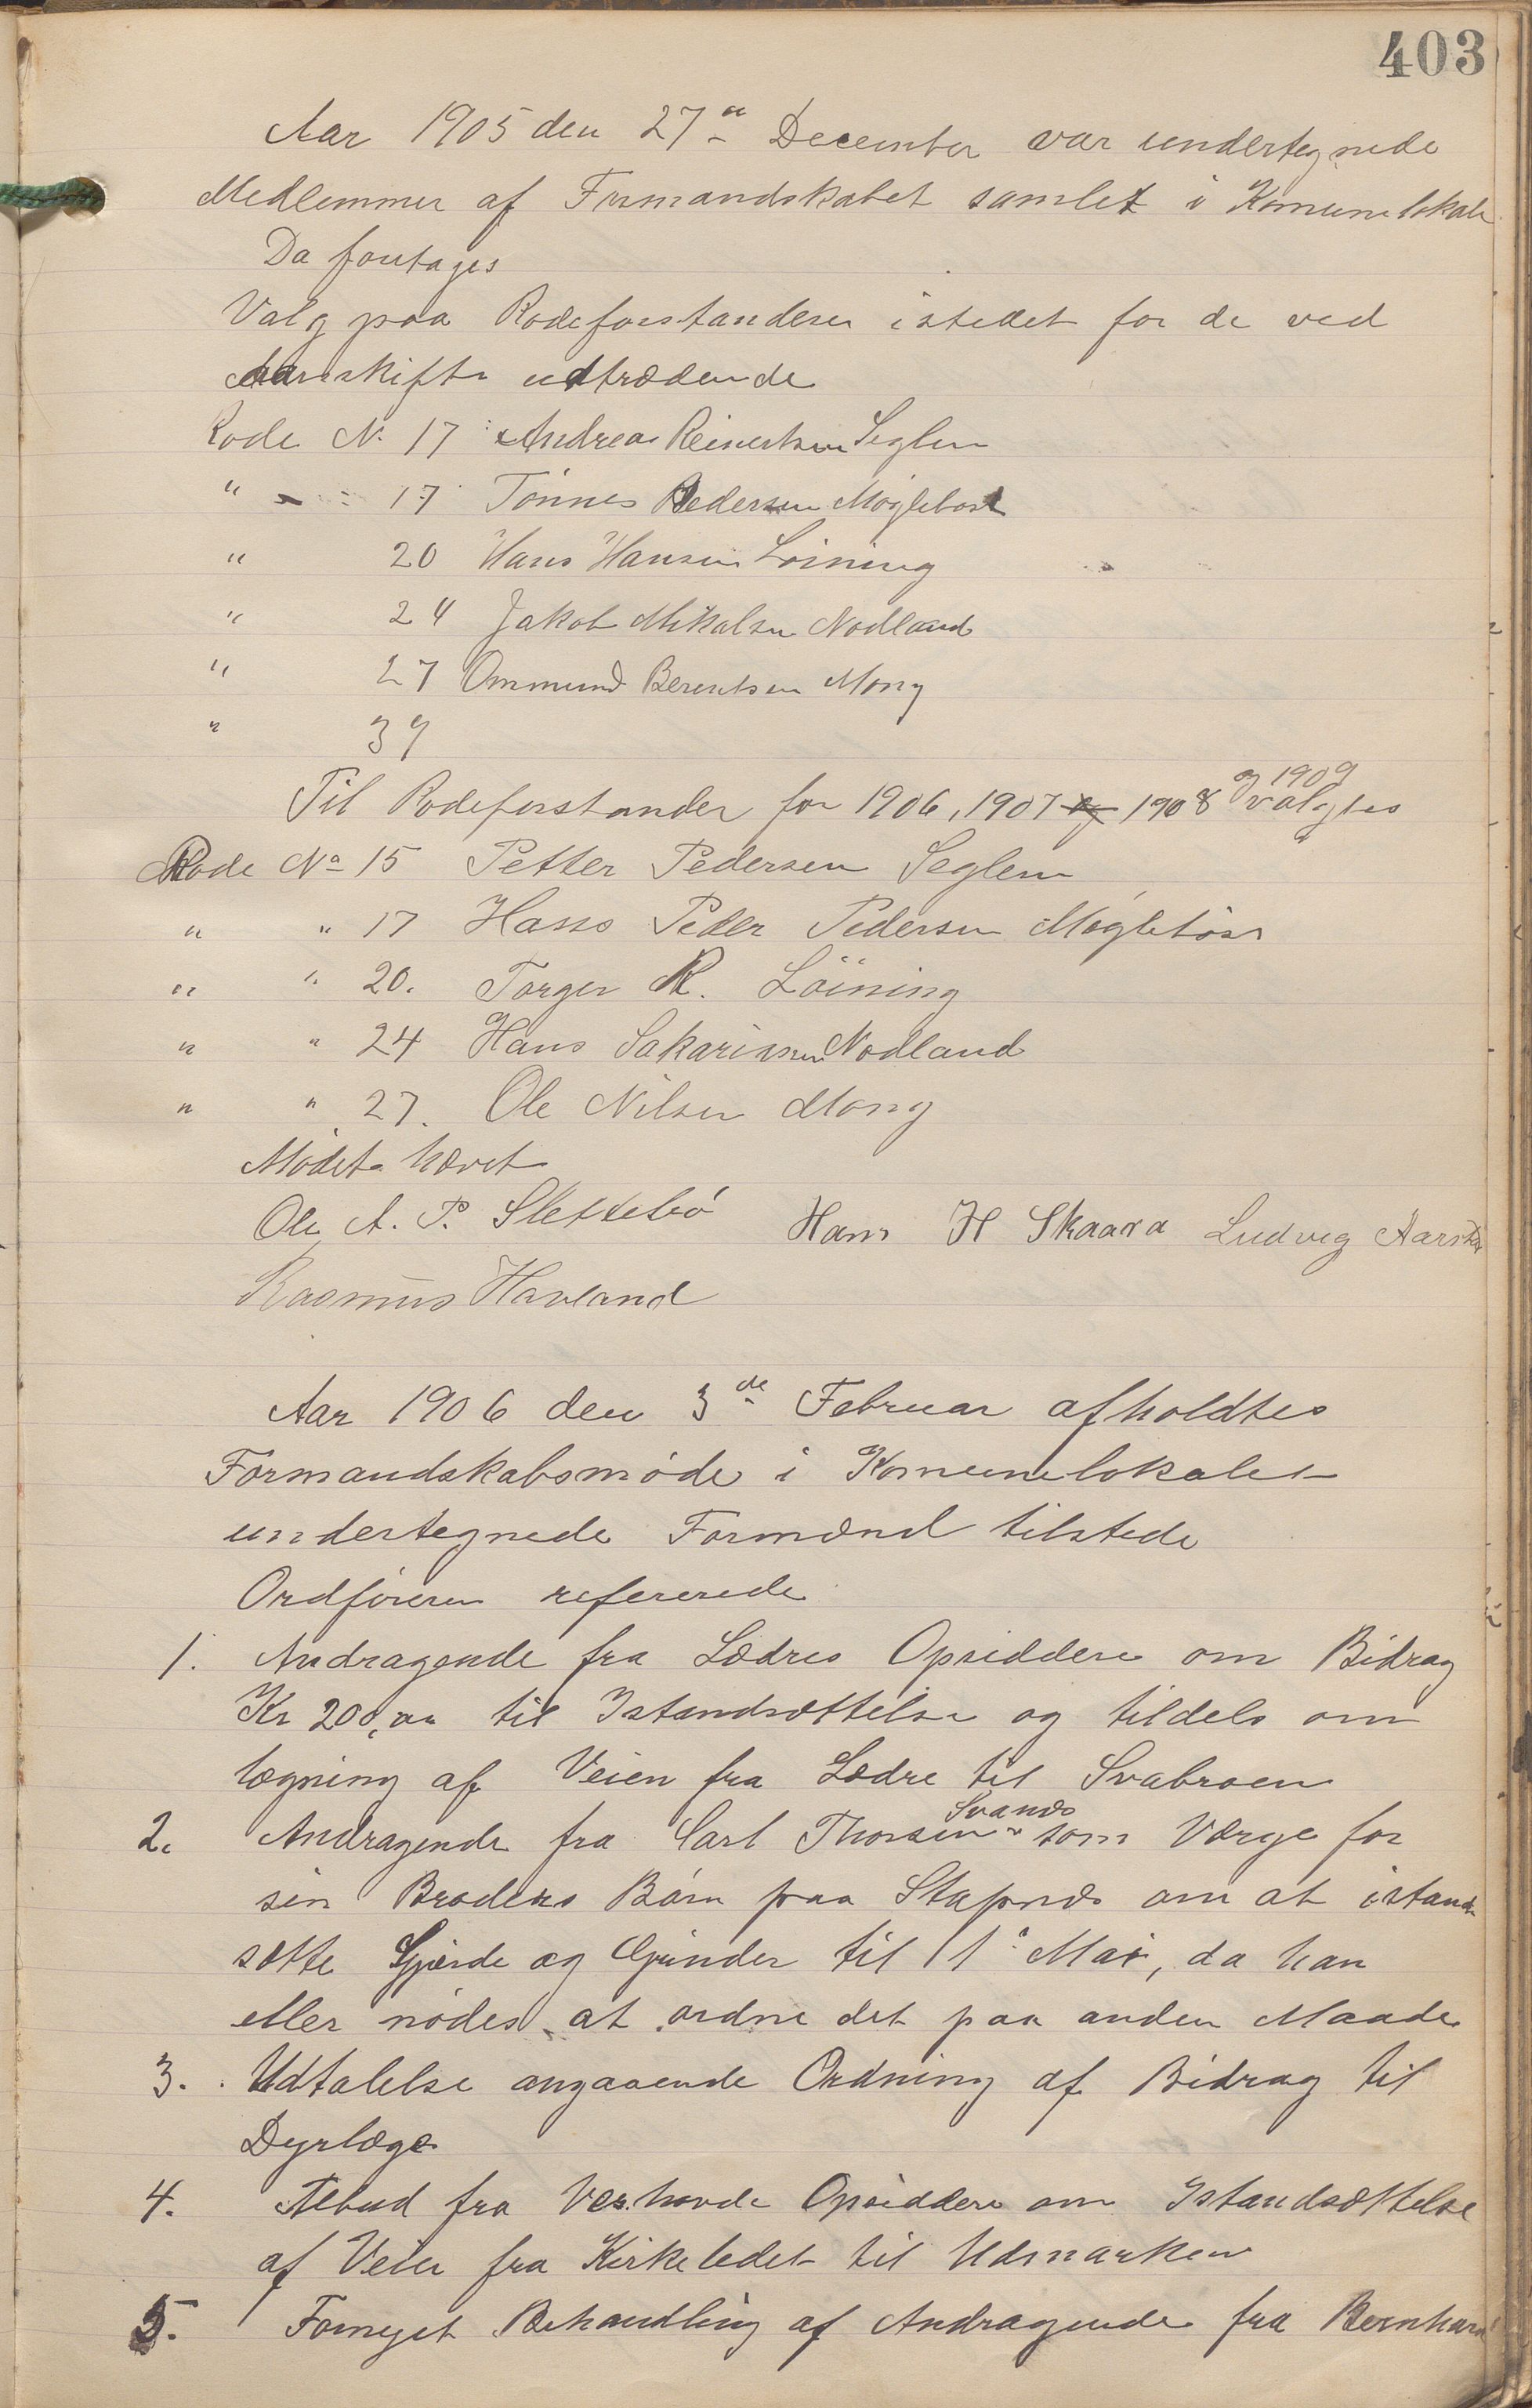 403
Aar 1905 den 27de December var undertegnede
Medlemmer af Formandskabet samlet i Komunelokale
Da foretages
Valg paa Rodeforstandere istedet for de ved
Aarsskifte udtrædende
Rode N. 17 Andreas Reinertsen Seglem
" 17 Tönnes Pedersen Möglebost
" 20 Hans Hansen Löining
" 24 Jakob Mikalsen Nodland
" 27 Ommund Berentsen Mong
" 39
Til Rodeforstander for 1906, 1907 og 1908 og 1909 valgtes
Rode No 15 Petter Pedersen Seglem
" " 17 Hans Peder Pedersen
" " 20. Torger R. Löining
" " 24 Hans Sakariassen Nodland
" " 27. Ole Nilsen Mong
Mödet hævet
Ole A. P. Slettebö Hans H Skaara Ludvig Aarstad
Rasmus Havland
Aar 1906 den 3de Februar afholdtes
Formandskabsmöde i Komunelokalet
undertegnede Formænd tilstede
Ordföreren refererede
1. Andragende fra Lædres Opsiddere om Bidrag
Kr 200,00 til Istandsættelse og tildels om
lægning af Veien fra Lædre til Svabroen
2. Andragende fra Carl Thorsen Svanes som Værge for
sin Broders Börn paa Stapnæs om at istand
sætte Gjærde og Grinder til 1ste Mai, da han
eller nödes at ordne det paa anden Maade
3. Udtalelse angaaende Ordning af Bidrag til
Dyrlæge
4. Tilbud fra Opsiddere om Istandsættelse
af Veien fra Kirkeledet til Udmarken
5. Fornyet Behandling af Andragende fra Bernhard